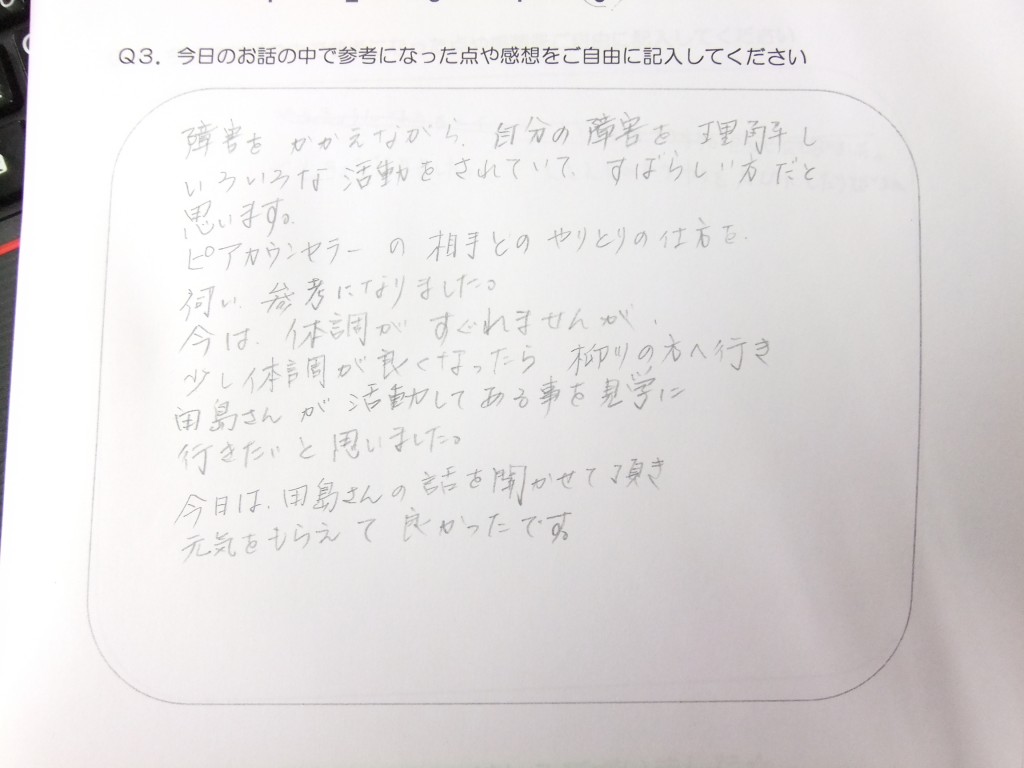 Q3. 今日のお話の中で参考になった点や感想をご自由に記入してください
障害を かかえながら、自分の 障害を 理解し
いろいろな 活動をされていて、すばらしい方だと
思います。
ピアカウンセラー の 相手との やりとりの仕方を、
伺い、参考になりました。
今は、体調が すぐれませんが、
少し体調が良くなったら 柳川の方へ行き
田島さん が 活動してある事を見学に
行きたいと思いました。
今日は、田島さんの 話を聞かせて頂き
元気をもらえて 良かったです。